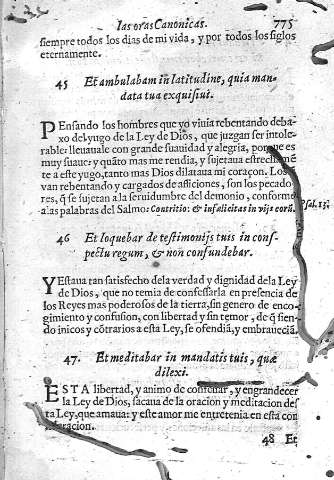 las oras Canonicas. 775
siempre todos los dias de mi vida, y por todos los siglos
eternamente.
45 Et ambulabam in latitudine, quia man-
data tua exquisiui.
PEnsando los hombres que yo viuia rebentando deba-
xo del yugo de la Ley de Dios, que juzgan ser intole-
rable: lleuauale con grande suauidad y alegria, porque es
muy suaue: y quãto mas me rendia, y sujetaua estrechamẽ
te a este yugo, tanto mas Dios dilataua mi coraçon. Los q̃
van rebentando y cargados de afliciones, son los pecado-
res, q̃ se sujetan a la seruidumbre del demonio, conforme
a las palabras del Salmo: Contritio: & infalicitas in vijs eorũ. Psal. 13.
46 Et loquebar de testimonijs tuis in cons-
pectu regum, & non confundebar.
YEstaua tan satisfecho de la verdad y dignidad de la Ley
de Dios, que no temia de confessarla en presencia de
los Reyes mas poderosos de la tierra, sin genero de enco-
gimiento y confusion, con libertad y sin temor, de q̃ siẽn-
do inicos y cõtrarios a esta Ley, se ofendiã, y embrauecíã.
47. Et meditabar in mandatis tuis, quæ
dilexi.
ESTA libertad, y animo de confessar, y engrandecer
la Ley de Dios, sacaua de la oracion y meditacion des-
ta Ley, que amaua: y este amor me entretenia en esta con
sideracion.
48 Et